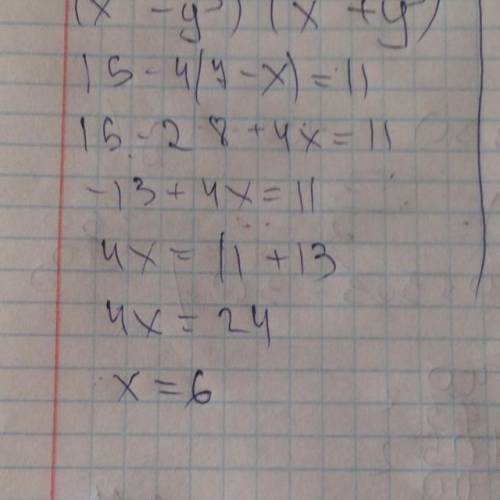 (x - y ) (x + y )
15 - 4(7 - x) = 11
15 - 28 + 4x = 11
-13 + 4x = 11
4x = 11 + 13
4x = 24
x = 6